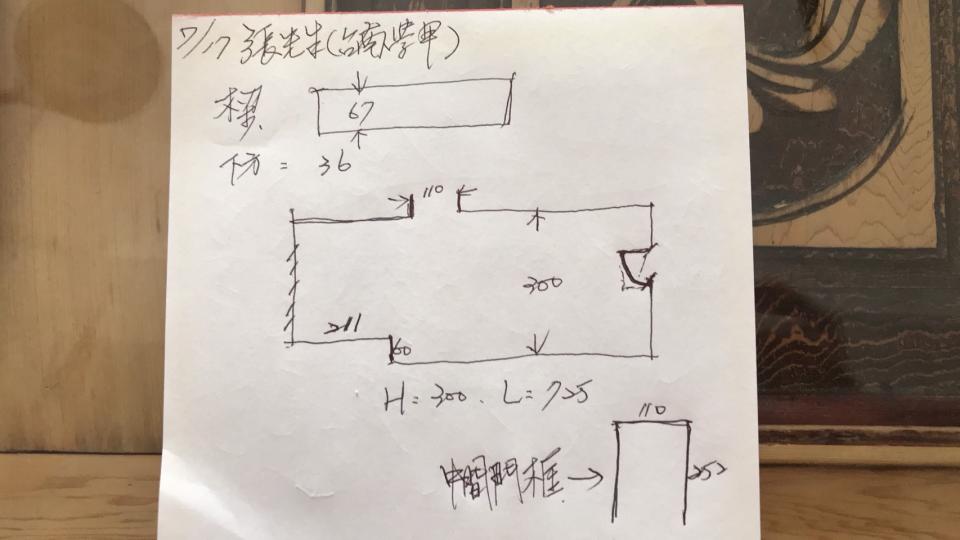 7/17 張先生(台南學甲)
樑
67
下方 = 36
110
300
211
60
H = 300 . L = 725
110
中間門框→
252